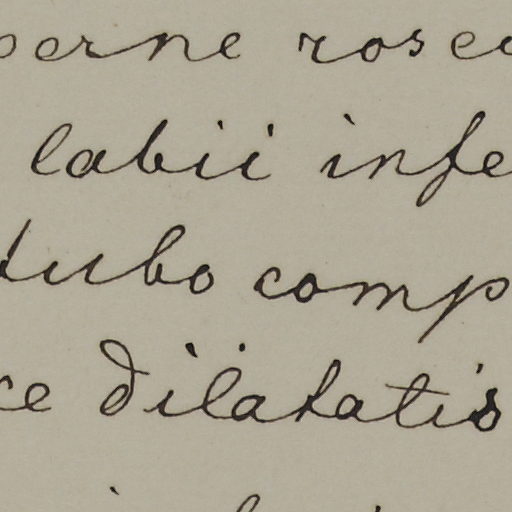 perne rose
labii infe
tubo comp
ce dilatatis